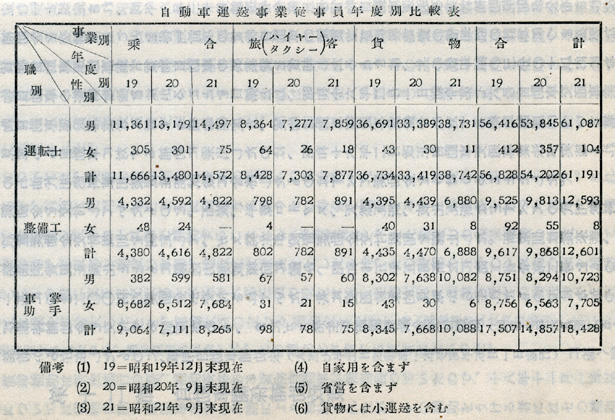 自動車運送事業従事員年度別比較表
事業別 年度別 性別 職別 乗合 旅(ハイヤータクシー)客 貨物 合計
19 20 21 19 20 21 19 20 21 19 20 21
運転士 男 11,361 13,179 14,497 8,364 7,277 7,859 36,691 33,389 38,731 56,416 53,845 61,087
女 305 301 75 64 26 18 43 30 11 412 357 104
計 11,666 13,480 14,572 8,428 7,303 7,877 36,734 33,419 38,742 56,828 54,202 61,191
整備工 男 4,332 4,592 4,822 798 782 891 4,395 4,439 6,880 9,525 9,813 12,593
女 48 24 — 4 — — 40 31 8 92 55 8
計 4,380 4,616 4,822 802 782 891 4,435 4,470 6,888 9,617 9,868 12,601
車掌助手 男 382 599 581 67 57 60 8,302 7,638 10,082 8,751 8,294 10,723
女 8,682 6,512 7,684 31 21 15 43 30 6 8,756 6,563 7,705
計 9,064 7,111 8,265 98 78 75 8,345 7,668 10,088 17,507 14,857 18,428
備考 (1) 19=昭和19年12月末現在 (4) 自家用を含まず
(2) 20=昭和20年 9月末現在 (5) 省営を含まず
(3) 21=昭和21年 9月末現在 (6) 貨物には小運送を含む